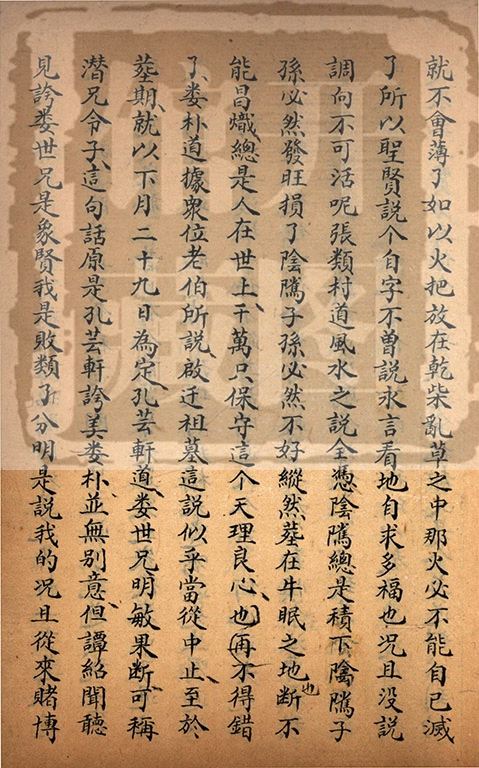 就不會薄了如以火把放在乾柴亂草之中那火必不能自己滅
了所以聖賢説个自字不曽説永言看地自求多福也况且没説
調向不可活呢張類村道風水之説全憑陰隲總是積下陰隲子
孫必然發旺損了陰隲子孫必然不好縱然塟在牛眠之地断不
也
能昌熾總是人在世上千萬只保守這个天理良心也再不得錯
了婁朴道據衆位老伯所説啟迁祖墓這説似乎當從中止至於
塟期就以下月二十九日為定孔芸軒道婁世兄明敏果断可稱
潜兄令子這句話原是孔芸軒誇美婁朴並無别意但譚紹聞聽
見誇婁世兄是象賢我是敗類了分明是説我的况且從來賭博